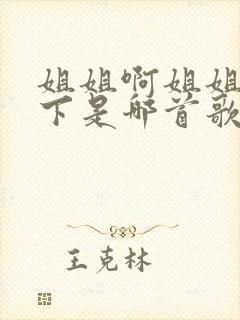 姐姐啊姐姐
下是哪首歌
王克林